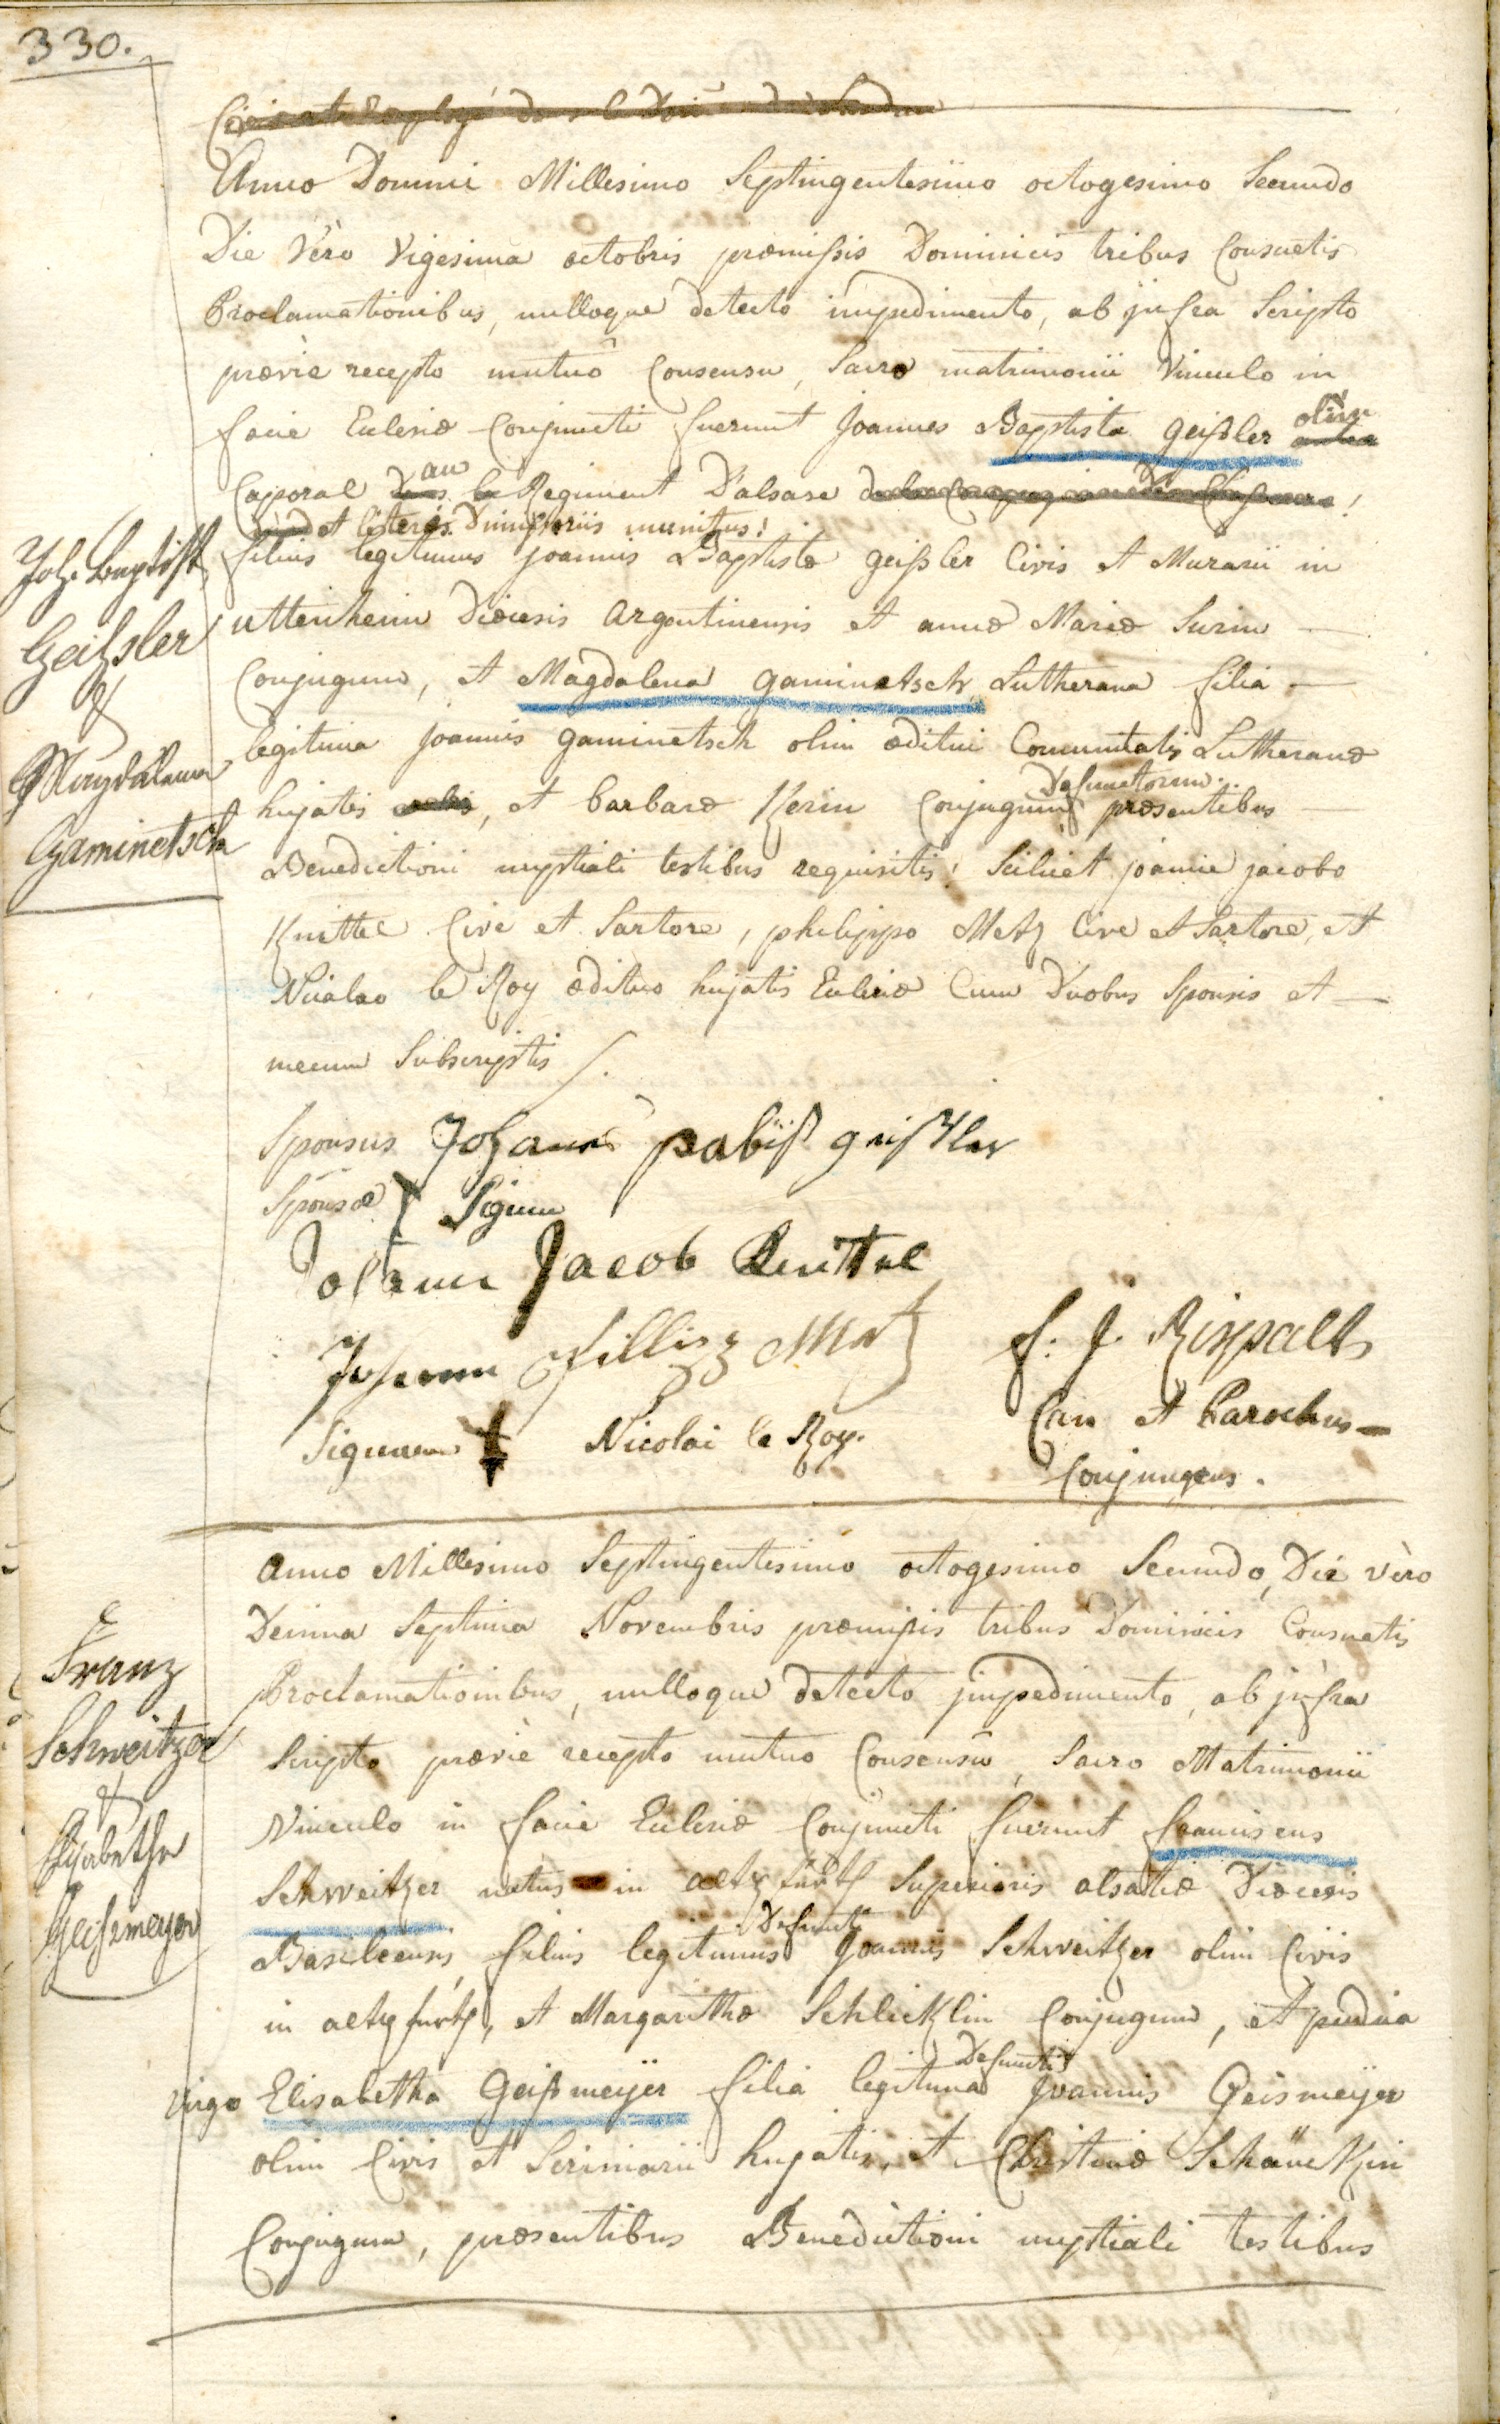 330.
Anno Domini Millesimo Septingentesimo octogesimo Secundo
Die Vèro Vigesima octobris præmissis Dominicis tribus Consuetis
Proclamationibus, nulloque detecto impedimento, ab jnfra Scripto
prævie recepto mutuô Consensu, Sacro matrimonii Vinculo in
facie Ecclesiæ Conjuncti fuerunt Joannes Baptista Geißler olim
Caporal au Regiment D'alsase
et literis Dimissoriis munitus!
filius legitimus Joannis Baptistæ Geißler Civis et Murarii in
Uttenheim Diœcesis Argentinensis et annæ Mariæ Surin
Conjugum, et Magdalena Gaminetsch Lutherana filia
legitima Joannis Gaminetsch olim æditui Communitatis Lutheranæ
hujatis, et barbaræ Kerin Conjugum Defunctorum præsentibus
Benedictioni nuptiali testibus requisitis! Scilicet joanne jacobo
Knittel Cive et Sartore, philippo Metz Cive et Sartore, et
Nicolao le Roy ædituo hujatis Ecclesiæ Cum Duobus Sponsis et
mecum Subscriptis
Joh. Baptist
Geißsler
&
Magdalena
Gaminetsch
Sponsus Johanes pabtist geistler
Sponsæ Signum
Johann Jacob Knittel
Johann fillipz Metz
F. J. Rispalts
Signum Nicolai le Roy.
Can et Parochus
Conjungens.
Anno Millesimo Septingentesimo octogesimo Secundo, Die vèro
Decima Septima Novembris præmissis tribus Dominicis Consuetis
Proclamationibus, nulloque detecto jmpedimento, ab jnfra
Scripto prævie recepto mutuo Consensu, Sacro Matrimonii
Vinculo in facie Ecclesiæ Conjuncti fuerunt franciscus
Schweitzer natus in Superioris alsatiæ Diœcesis
Basileensis, filius legitimus Defuncti Joannis Schweitzer olim Civis
in, et Margarithæ Schlicklin Conjugum, et pudica
Virgo Elisabetha Geißmeÿer filia legitima Defuncti Joannis Geismeÿer
olim Civis et Scriniarii hujatis, et Christinæ
Conjugum, præsentibus Benedictioni nuptiali testibus
Franz
Schweitzer
&
Elisabetha
Geißmeyer